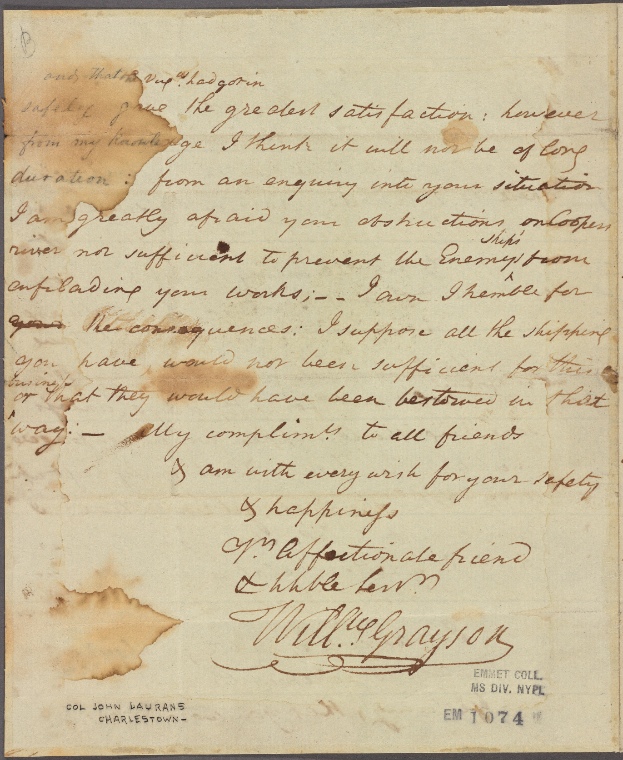 and that Virg.ns had got in
safety gave the greatest satisfaction: however
from my knowledge I think it will not be of long
duration: from an enquiry into your situation
I am greatly afraid your obstructions on Coopers
river not sufficient to prevent the Enemy's ships from
enfilading your works;-- I own I tremble for
your the consequences: I suppose all the shipping
you have would not been sufficient for this
business or that they would have been bestowed in that
way:— My complimts to all friends
& am with every wish for your safety
& happiness
Yrs Affectionate friend
& hble Servt
Willm Grayson
COL JOHN LAURANS
CHARLESTOWN-
EMMET COLL.
MS DIV. NYPL
EM 1074